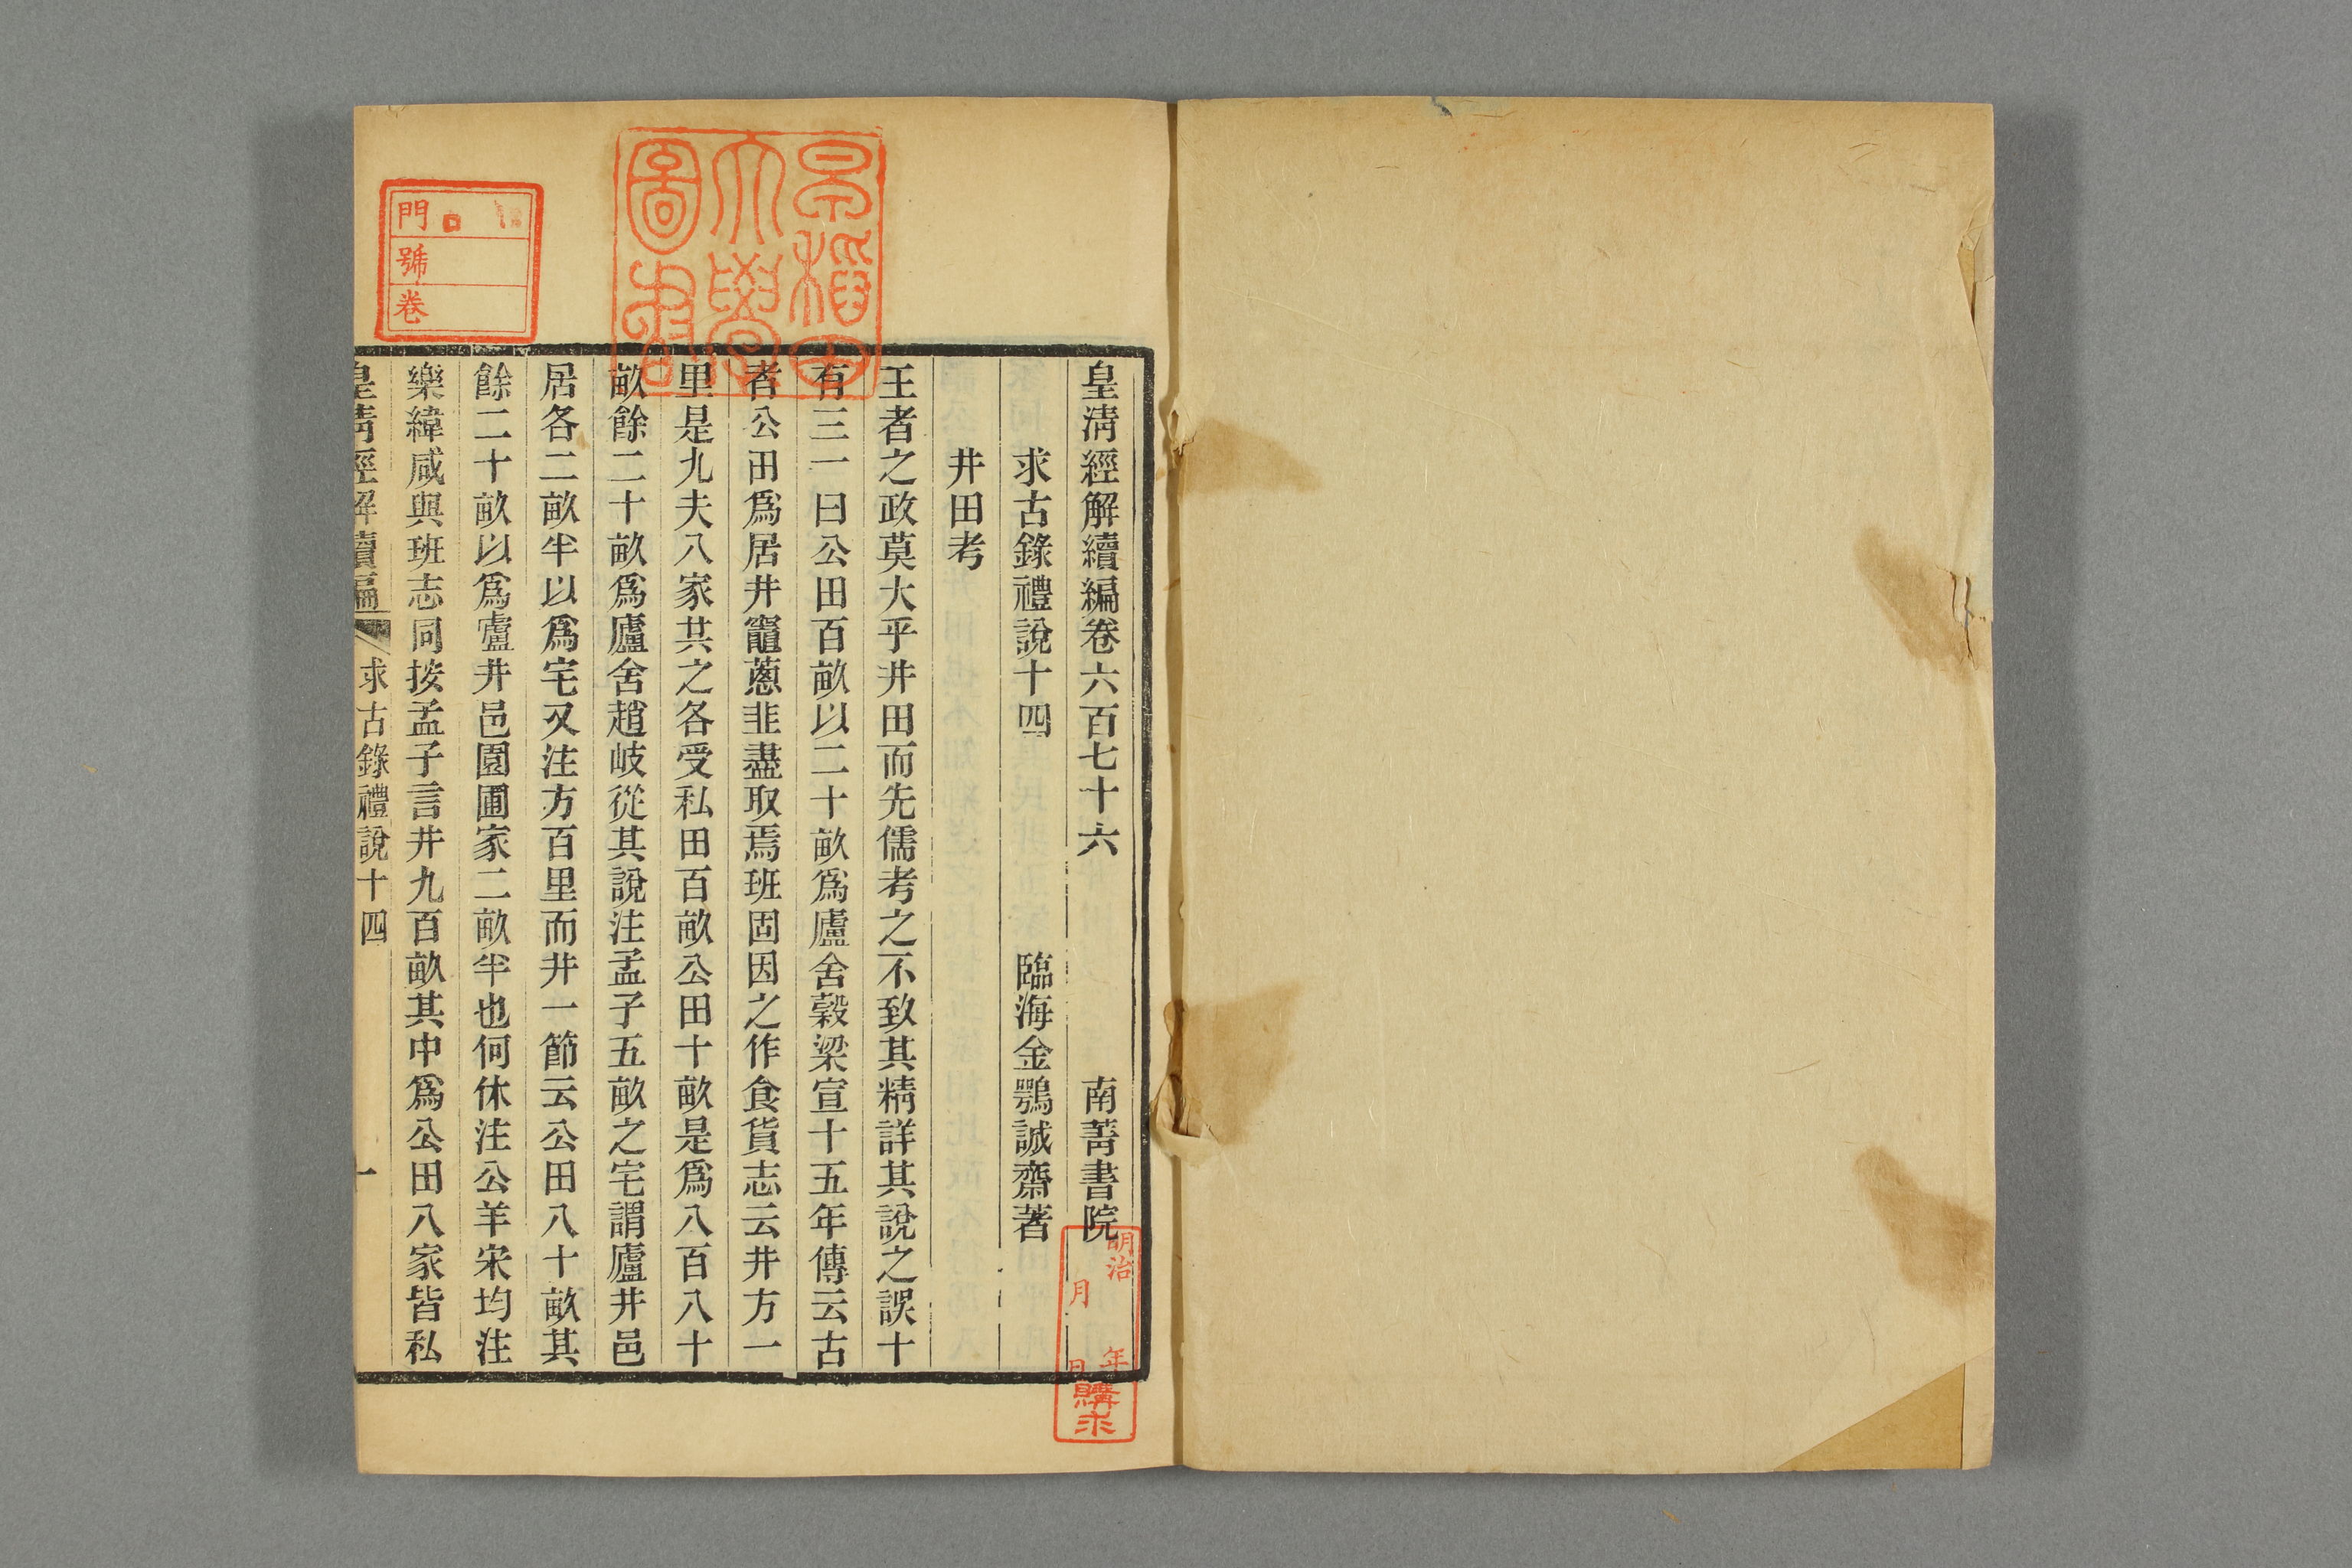 皇清經解續編卷六百七十六 南菁書院
求古錄禮說十四 臨海金鶚誠齋著
井田考
王者之政莫大乎井田而先儒考之不致其精詳其說之誤十
有三一曰公田百畝以二十畝爲廬舍穀梁宣十五年傳云古
者公田爲居井竈蔥韭盡取焉班固因之作食貨志云井方一
里是九夫八家共之各受私田百畝公田十畝是爲八百八十
畝餘二十畝爲廬舍趙岐從其說注孟子五畝之宅謂廬井邑
居各二畝半以爲宅又注方百里而井一節云公田八十畝其
餘二十畝以爲廬井邑園圃家二畝半也何休注公羊宋均注
樂緯咸與班志同按孟子言井九百畝其中爲公田八家皆私
皇清經解續編 求古錄禮說十四 一
早稻田
大學
圖書
門
號
卷
明治 年
月 日
購求